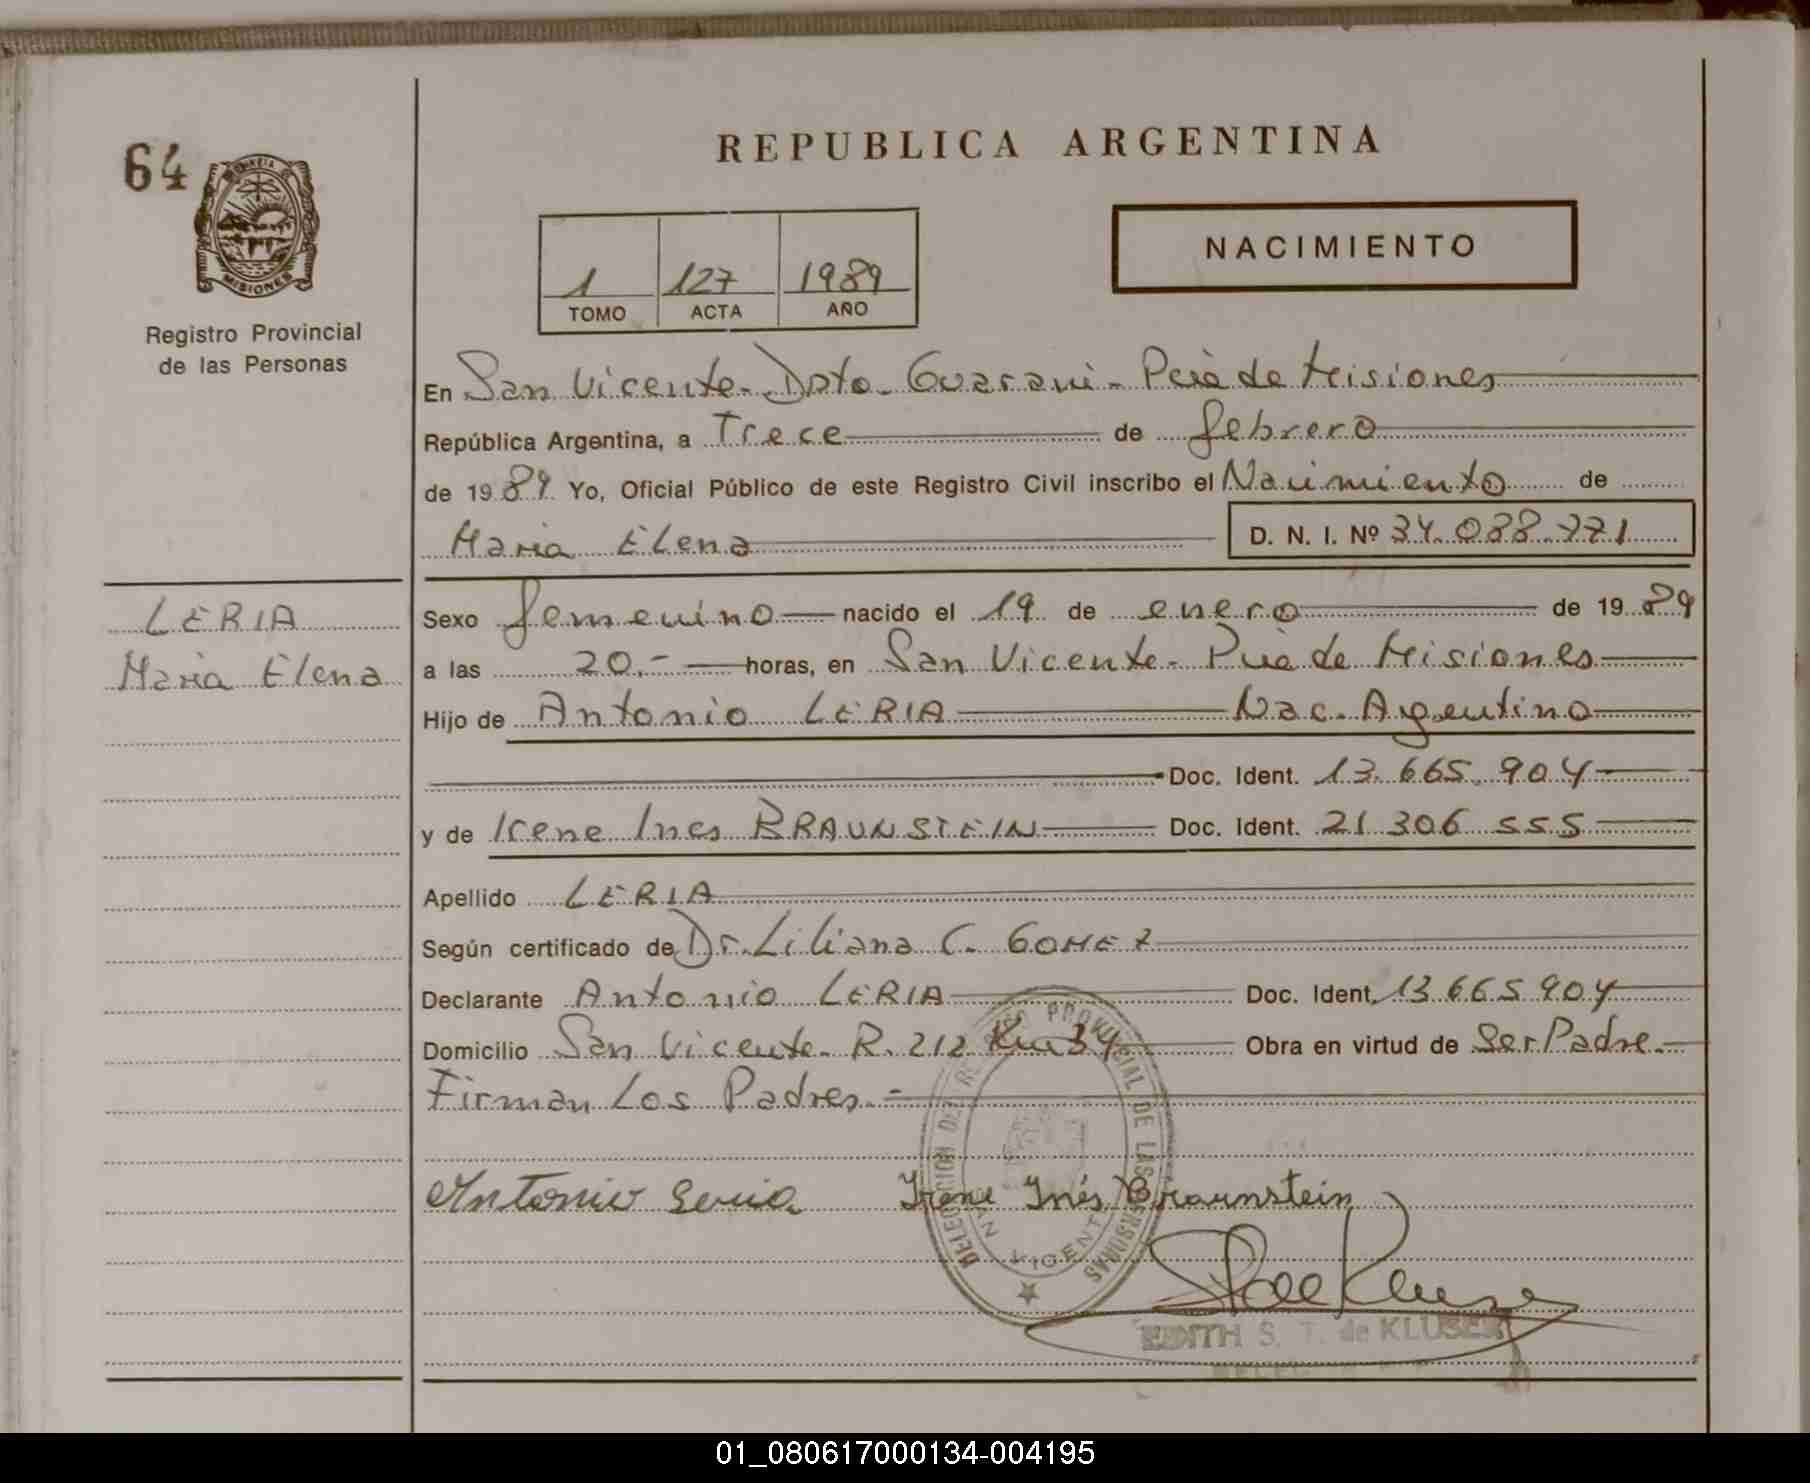 64
MISIONES
Registro Provincial
de las Personas
REPUBLICA ARGENTINA
1 127 1989
TOMO ACTA AÑO
NACIMIENTO
En San Vicente - Dpto - Guarani - Pcia de Misiones
República Argentina, a Trece de febrero
de 1989 Yo, Oficial Público de este Registro Civil inscribo el Nacimiento de
Maria Elena D. N. I. Nº 34.088.771
LERIA
Maria Elena
Sexo femenino nacido el 19 de enero de 1989
a las 20.- horas, en San Vicente - Pcia de Misiones
Hijo de Antonio LERIA Nac. Argentino
Doc. Ident. 13.665.904
y de Irene Ines BRAUNSTEIN Doc. Ident. 21 306 555
Apellido LERIA
Según certificado de Dr. Liliana C. GOMEZ
Declarante Antonio LERIA Doc. Ident. 13.665 904
Domicilio San Vicente - R. 212 Km 34 Obra en virtud de Ser Padre.-
Firman Los Padres.-
DELEGACION DEL REGISTRO PROVINCIAL DE LAS PERSONAS
SAN VICENTE
Antonio Leria Irene Inés Braunstein
EDITH S. T. de KLUSER
01_080617000134-004195